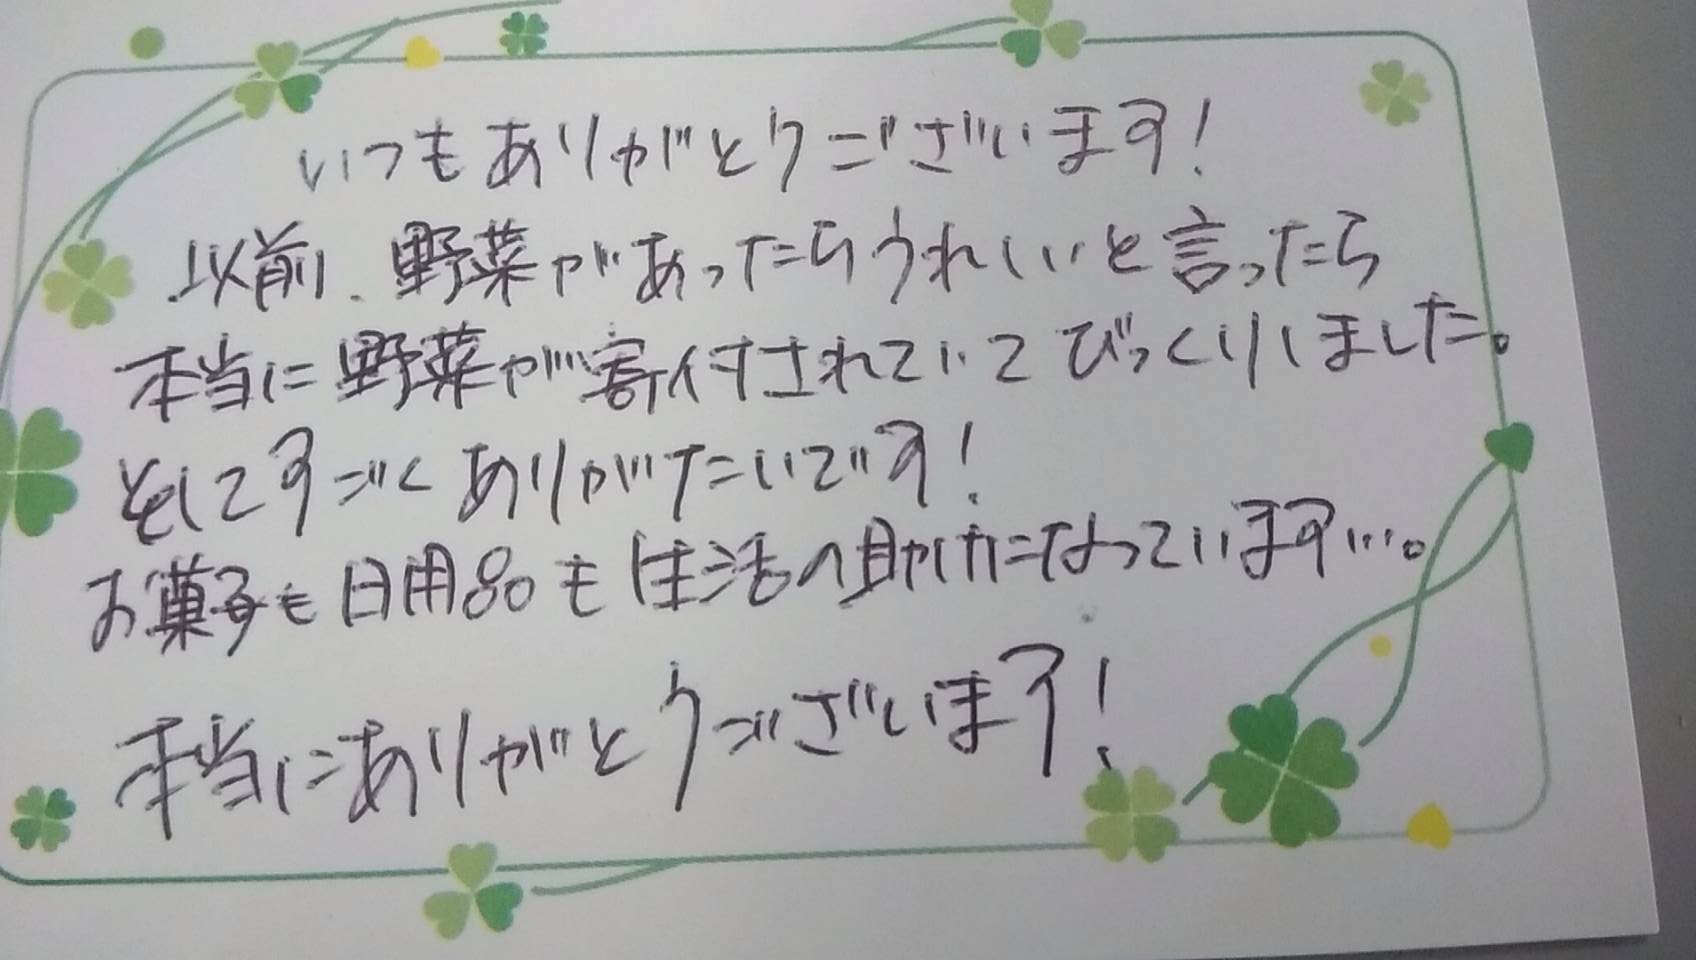 いつもありがとうございます!
以前、野菜があったらうれしいと言ったら
本当に野菜が寄付されていてびっくりしました。
そしてすごくありがたいです!
お菓子も日用品も生活の助けになっています…。
本当にありがとうございます!